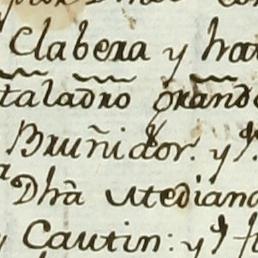 Clabera y
taladro grande
Bruñidor. y
Dhã Mediana
y Cautin: y